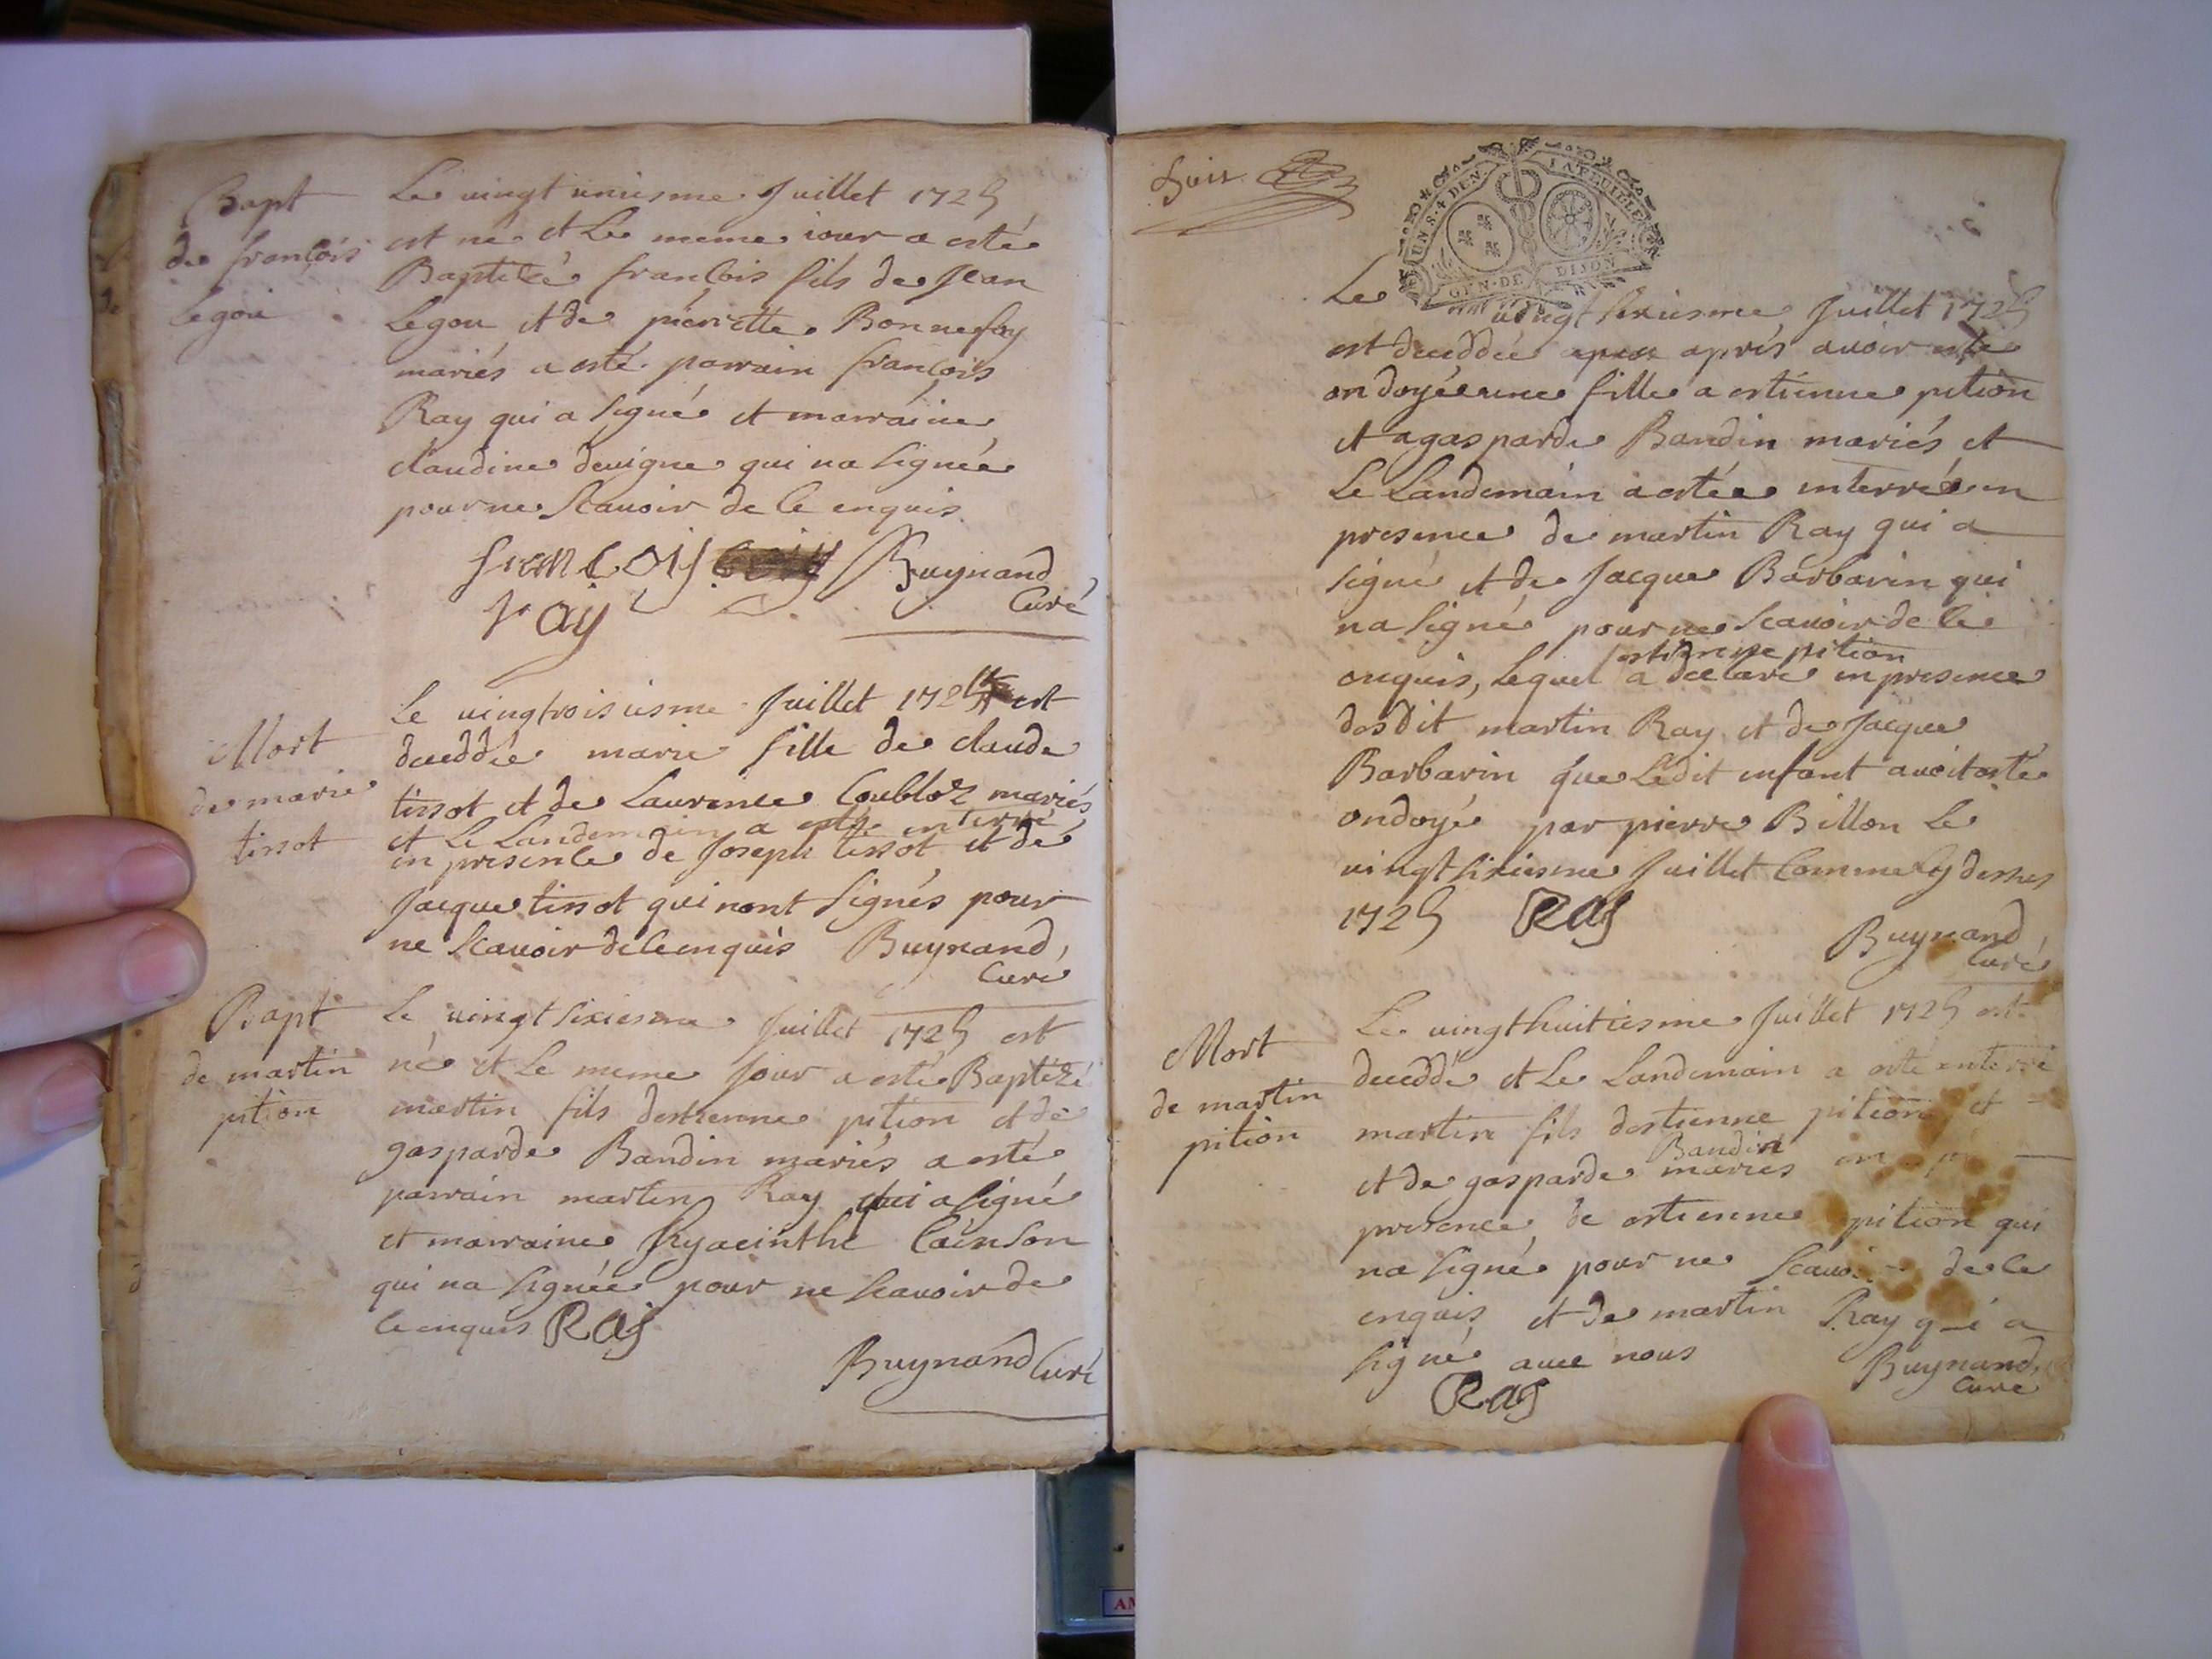 Bapt
de françois
Legou
Le vingt uniesme Juillet 1725
est né et Le meme iour a esté
Baptizé françois fils de Jean
Legou et de pierrette Bonnefoy
mariés a esté parrain françois
Ray qui a signé et marraine
claudine devigne qui na signée
pour ne scavoir de ce enquis
francois
ray
Buynand
Curé
Mort
de marie
tissot
Le vingtroisiesme Juillet 1725 est
deceddée marie fille de claude
tissot et de Laurence Coubloz mariés
et Le Landemain a esté enterré
en presence de Joseph tissot et de
Jacque tissot qui nont signés pour
ne scavoir de ce enquis Buynand,
Curé
Bapt
de martin
pition
Le vingt sixiesme Juillet 1725 est
né et Le meme Jour a esté Baptizé
martin fils destienne pition et de
gasparde Bandin mariés a esté
parrain martin Ray qui a signé
et marraine hyacinthe
qui na signée pour ne scavoir de
ce enquis Ray
Buynand Curé
UN S. 4 DEN. LA FEUILLE
GEN. DE DIJON
Le vingt sixiesme Juillet 1725
est deceddée après avoir esté
ondoyée une fille a estienne pition
et a gasparde Bandin mariés et
Le Landemain a estée enterrée en
presence de martin Ray qui a
signé et de Jacque Barbarin qui
na signé pour ne scavoir de ce
estienne pition
enquis, Lequel a declaré en presence
desdit martin Ray et de Jacque
Barbarin que Ledit enfant avoit esté
ondoyé par pierre Billon Le
vingt sixiesme Juillet Comme cy dessus
1725 Ray
Buynand,
Curé
Mort
de martin
pition
Le vingthuitiesme Juillet 1725 est
deceddé et Le Landemain a esté enterré
martin fils destienne pition et
Bandin
et de gasparde mariés en
presence de estienne pition qui
na signé pour ne scavoir de ce
enquis et de martin Ray qui a
signé avec nous
Buynand,
Curé
Ray